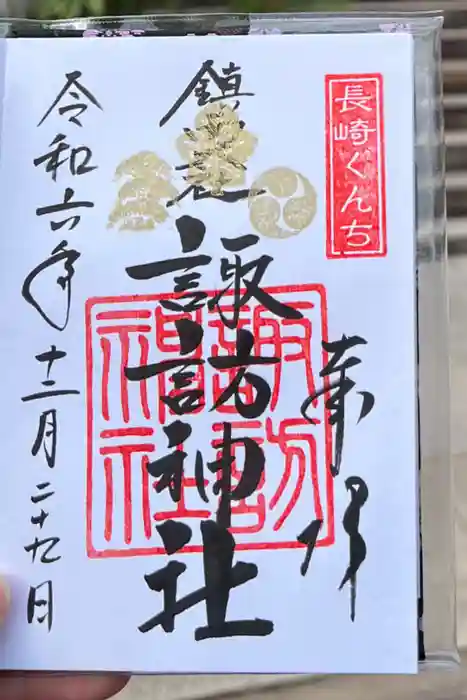 長崎くんち
奉拝
鎮
諏訪神社
諏訪
神社
令和六年十二月二十九日